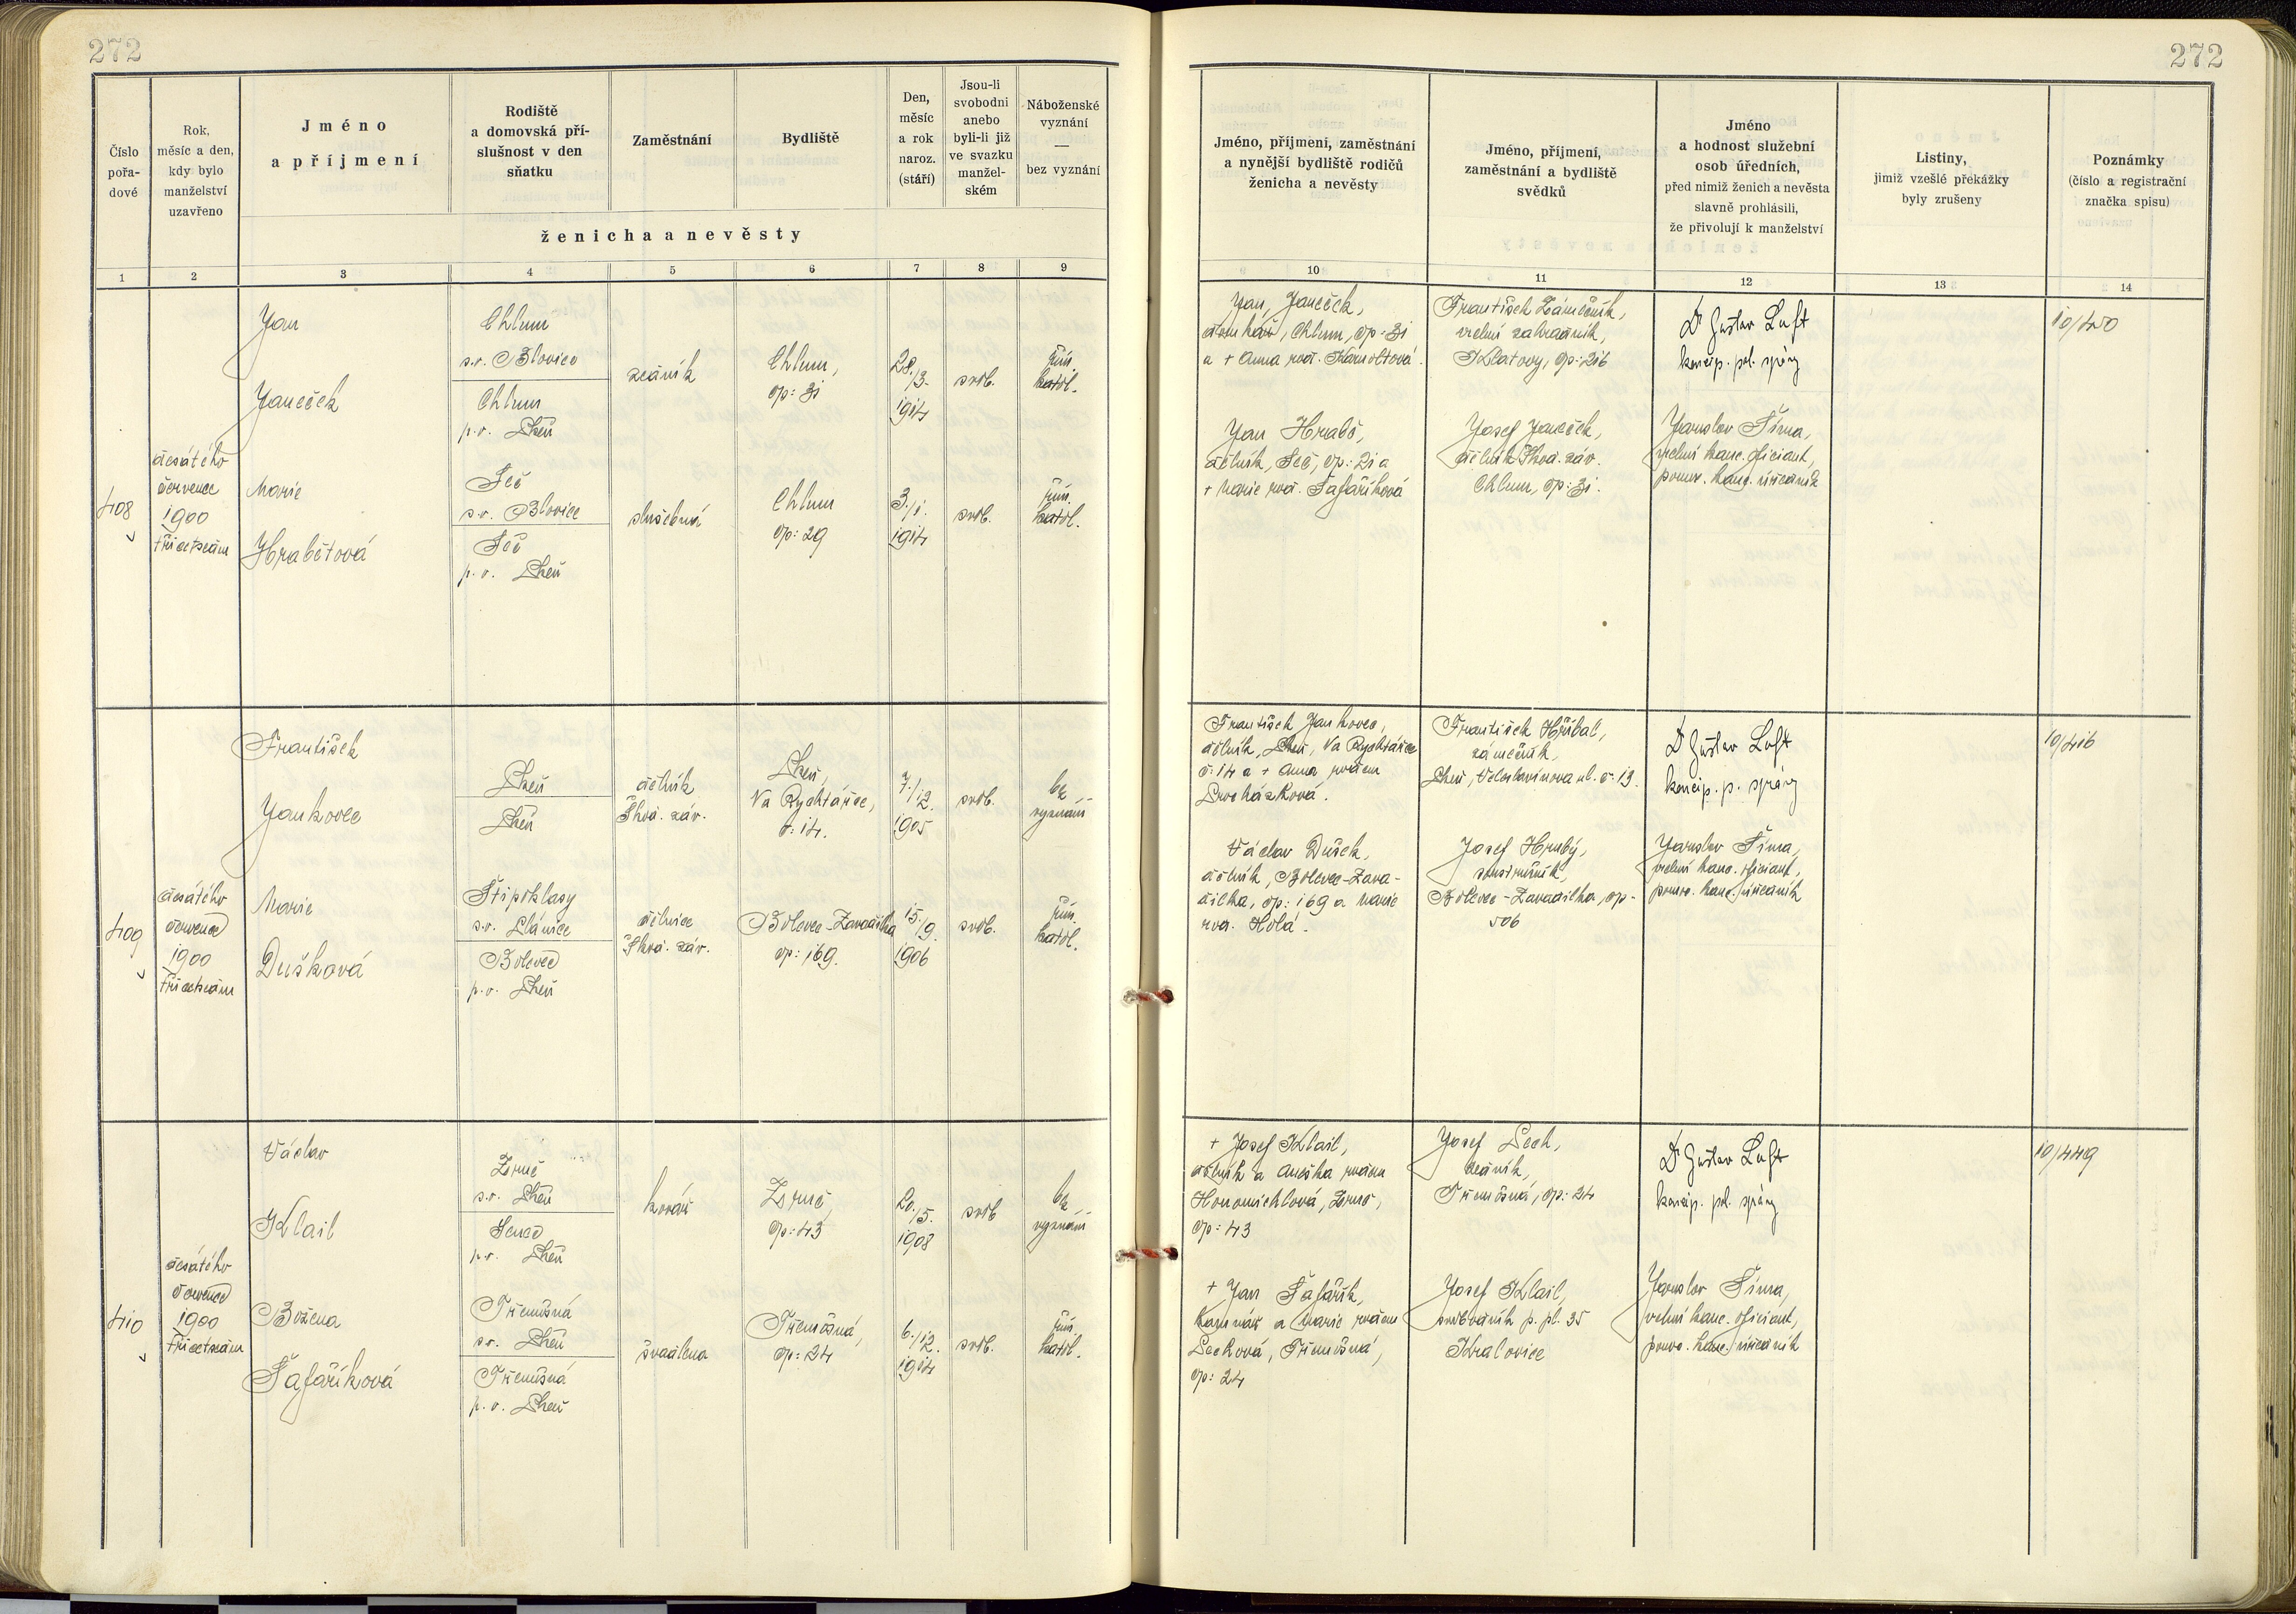 272
272
Číslo
pořa-
dové
Rok,
měsíc a den,
kdy bylo
manželství
uzavřeno
Jméno
a příjmení
Rodiště
a domovská pří-
slušnost v den
sňatku
Zaměstnání
Bydliště
Den,
měsíc
a rok
naroz.
(stáří)
Jsou-li
svobodni
anebo
byli-li již
ve svazku
manžel-
ském
Náboženské
vyznání
—
bez vyznání
ženicha a nevěsty
Jméno, příjmení, zaměstnání
a nynější bydliště rodičů
ženicha a nevěsty
Jméno, příjmení,
zaměstnání a bydliště
svědků
Jméno
a hodnost služební
osob úředních,
před nimiž ženich a nevěsta
slavně prohlásili,
že přivolují k manželství
Listiny,
jimiž vzešlé překážky
byly zrušeny
Poznámky
(číslo a registrační
značka spisu)
1 2 3 4 5 6 7 8 9
10 11 12 13 14
408
desátého
července
1900
třicetsedm
Jan
Janeček
Chlum
s.o. Blovice
Chlum
p.o. Plzeň
zedník
Chlum,
čp: 31
28./3.
1914
svob.
řím.
katol.
Marie
Hrabětová
Seč
s.o. Blovice
Seč
p.o. Plzeň
služebná
Chlum
čp: 29
3./1.
1914
svob.
řím.
katol.
Jan Janeček,
domkář, Chlum, čp: 31
a + Anna roz.
Jan Hrabě,
dělník, Seč, čp: 21 a
+ Marie roz. Šafaříková
František Zámečník,
vrchní zahradník,
Klatovy, čp: 216
Josef Janeček,
dělník Škod. záv.
Chlum, čp: 31.
Dr Gustav Luft
koncip. pol. správy
Jaroslav Šíma,
vrchní kanc. oficiant,
pomoc. kanc. úředník
10/450
409
desátého
července
1900
třicetsedm
František
Jankovec
Plzeň
Plzeň
dělník
Škod. záv.
Plzeň,
Na Rychtářce,
č: 14.
7./12.
1905
svob.
bez
vyznání
Marie
Dušková
Štipoklasy
s.o. Plánice
Bolevec
p.o. Plzeň
dělnice
Škod. záv.
Bolevec-Zavadilka
čp: 169.
15./9.
1906
svob.
řím.
katol.
František Jankovec,
dělník, Plzeň, Na Rychtářce
č: 14 a + Anna rozem
Procházková.
Václav Dušek,
dělník, Bolevec-Zava-
dilka, čp: 169 a Marie
roz. Holá.
František Hřibal,
zámečník,
Plzeň, Veleslavínova ul. č. 19.
Josef Hrubý,
soustružník,
Bolevec-Zavadilka, čp.
506
Dr Gustav Luft
koncip. p. správy
Jaroslav Šíma,
vrchní kanc. oficiant,
pomoc. kanc. úředník
10/416
410
desátého
července
1900
třicetsedm
Václav
Klail
Zruč
s.o. Plzeň
Senec
p.o. Plzeň
kovář
Zruč,
čp: 43
20./5.
1908
svob
bez
vyznání
Božena
Šafaříková
Třemošná
s.o. Plzeň
Třemošná
p.o. Plzeň
švadlena
Třemošná,
čp: 24
6./12.
1914
svob.
řím.
katol.
+ Josef Klail,
dělník a Anežka rozem
Honomichlová, Zruč,
čp: 43
+ Jan Šafařík,
kamnář a Marie rozem
Pecková, Třemošná,
čp: 24
Josef Peck,
zedník,
Třemošná, čp: 24
Josef Klail,
p. pl. 35
Kralovice
Dr Gustav Luft
koncip. pol. správy
Jaroslav Šíma,
vrchní kanc. oficiant,
pomoc. kanc. úředník
10/449